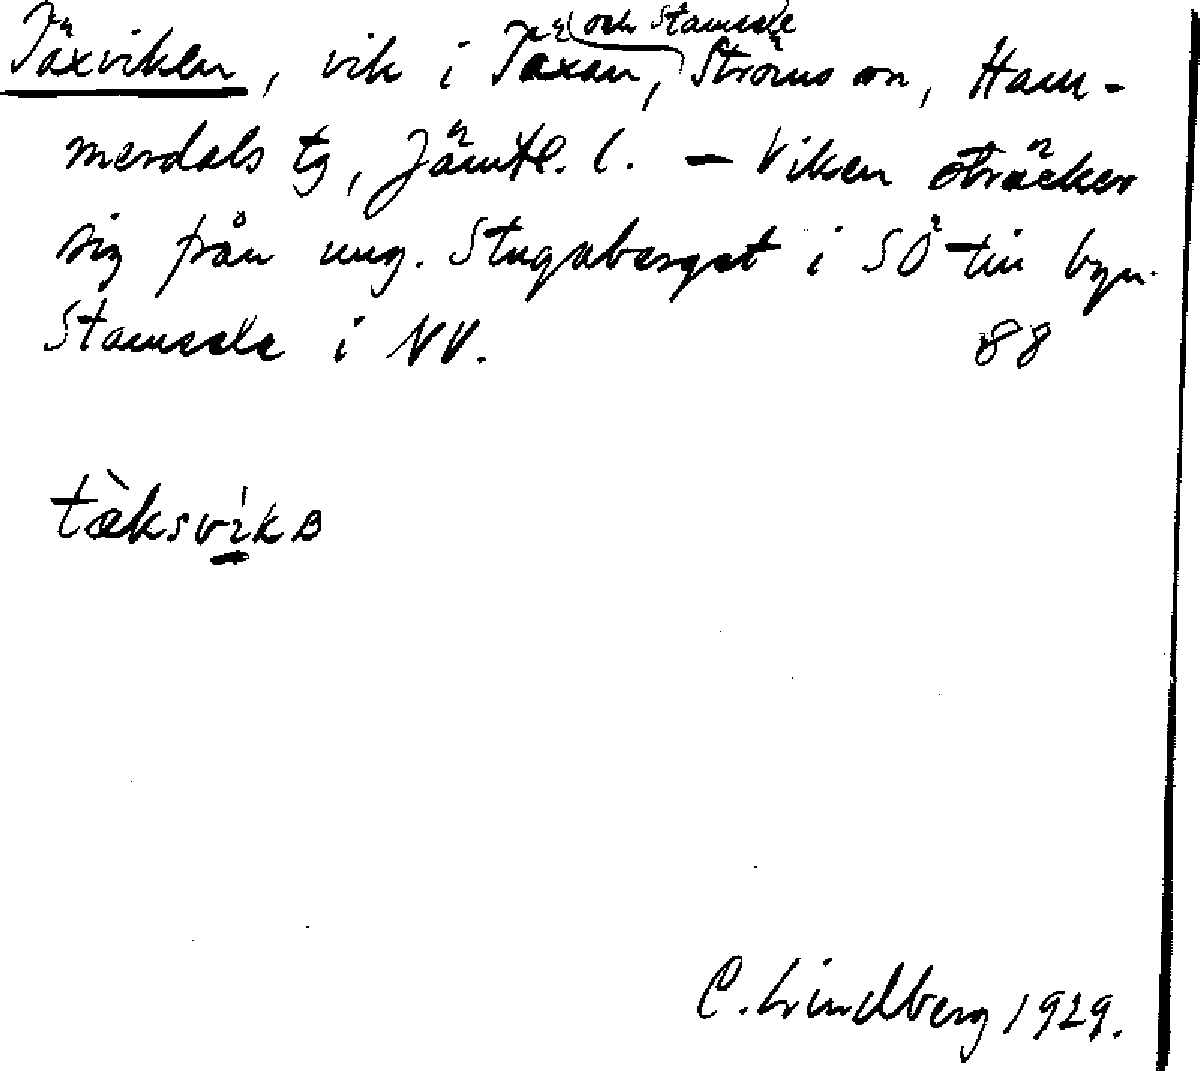 Täxviken, vik i Täxan (och Stamsele), Ströms sn, Ham-
merdals tg, Jämtl. l. – Viken sträcker
sig från ung. Stugaberget i SÖ till byn
Stamsele i NV. 88
tæ̀ksvìkɐ
C. Lindberg 1929.